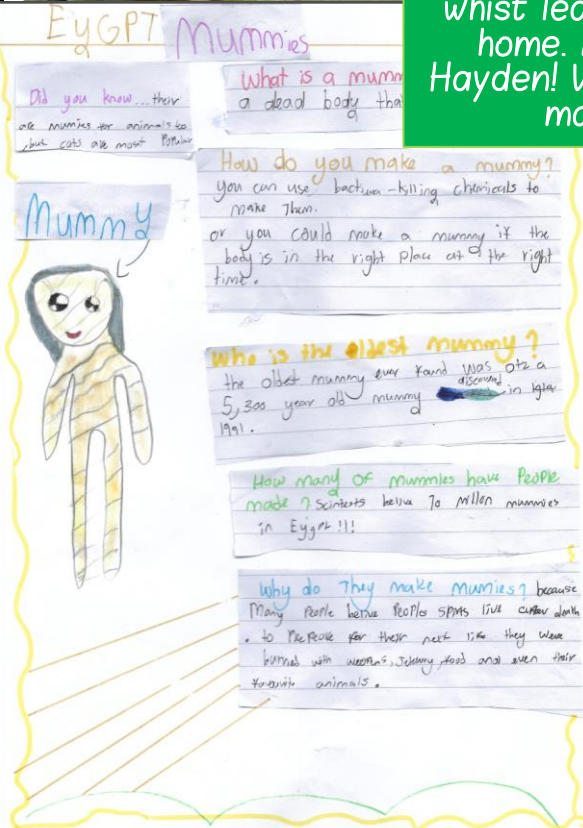 EYGPT Mummies
whist lea
home.
Hayden! V
mo
What is a mumm
a dead body tha
Did you know... their
are mumies for animals to
,but cats are most Popular
How do you make a mummy?
you can use bacturia-killing chemicals to
make Them.
or you could make a mummy if the
body is in the right Place at the right
time.
Mummy
who is the oldest mummy?
the oldest mummy ever found was otz a
5,300 year old mummy discoverd in
1991.
How many of mummies have People
made? Scintests belive 70 millon mummies
in Eygpt!!!
Why do They make Mumies? because
Many People belive Peoples live death
. to PrePeoe for their next life they were
burried with weopons, Jelewry, food and even their
favourite animals.